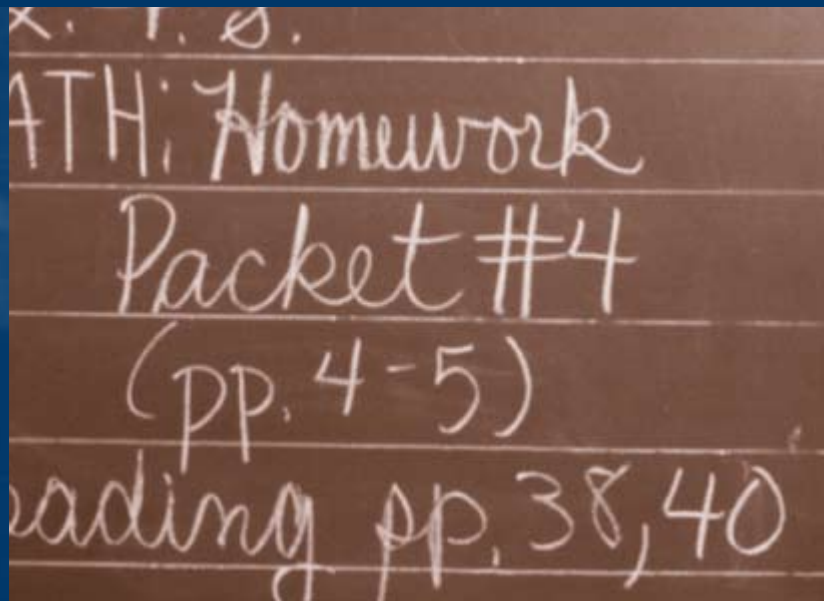 x. 4. s.
ATH: Homework
Packet #4
(pp. 4-5)
eading pp. 38, 40